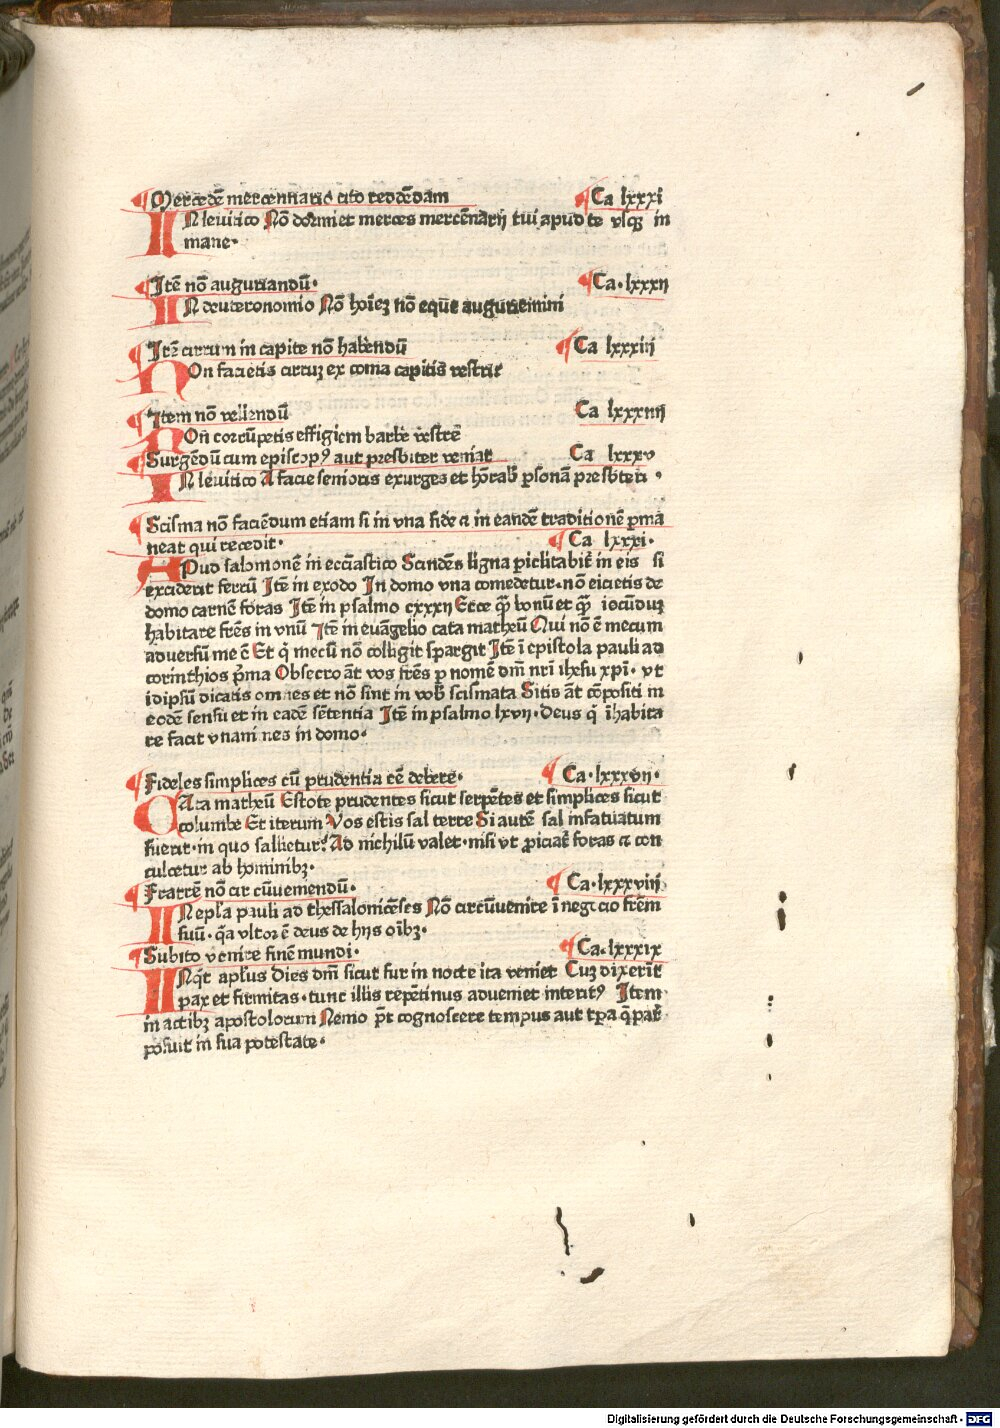 Mercedē mercennario cito reddēdam Ca lxxxi
IN leuitico Nō dormiet merces mercēnarij tui apud te vsqꝫ in
mane·
Itē nō auguriandū· Ca·lxxxij
IN deuteronomio Nō hoīeꝫ nō eque auguriemini
Itē cirrum in capite nō habēndū Ca lxxxiij
NOn facietis cirruꝫ ex coma capitis vestris
Item nō vellendū Ca lxxxiiij
NOn̄ corrūpetis effigiem barbe vestrē
Surgēdū cum episcopꝰ aut presbiter veniat Ca lxxxv
IN leuitico A facie senioris exurges et hōrab̄ ꝑsonā presbiteri ·
Scisma nō faciēdum etiam si in vna fide ⁊ in eandē traditionē ꝑma
neat qui recedit· Ca lxxxi·
APud salomonē in eccīastico Scindēs ligna ꝑiclitabit̄ in eis si
exciderit ferrū Itē in exodo In domo vna comedetur·nō eicietis de
domo carnē foras Itē in psalmo cxxxij Ecce q̄ꝫ bonū et q̄ꝫ iocūduꝫ
habitare frēs in vnū Itē in euāgelio cata matheū Qui nō ē mecum
aduersū me ē Et q̇ mecū nō colligit spargit Itē ī epistola pauli ad
corinthios p̄ma Obsecro āt vos frēs ꝑ nomē dn̄i nr̄i ihesu xp̄i· vt
idipsū dicatis omnes et nō sint in vob̄ scismata Sitis āt cōpositi in
eodē sensu et in eadē sētentia Itē in psalmo lxvij·Deus q̇ īhabita
re facit vnanimes in domo·
Fideles simplices cū prudentia eē debere· Ca·lxxxvij·
CAta matheū Estote prudentes sicut serpētes et simplices sicut
columbe Et iterum Vos estis sal terre Si autē sal infatuatum
fuerit·in quo salietur? Ad nichilū valet·nisi vt ꝓiciat̄ foras ⁊ con
culcetur ab hominibꝫ·
Fratrē nō circūueniendū· Ca·lxxxviij
IN epl̄a pauli ad thessalonicēses Nō circūuenire ī negocio frēm
suū· q̄a vltor ē deus de hijs oībꝫ·
Subito venire finē mundi· Ca·lxxxix
INq̄t apl̄us Dies dn̄i sicut fur in nocte ita veniet Cuꝫ dixerīt
pax et firmitas·tunc illis repētinus adueniet interitꝰ Item
in actibꝫ apostolorum Nemo p̄t cognoscere tempus aut tp̄a q̄ pat̄
posuit in sua potestate·
Digitalisierung gefördert durch die Deutsche Forschungsgemeinschaft - DFG